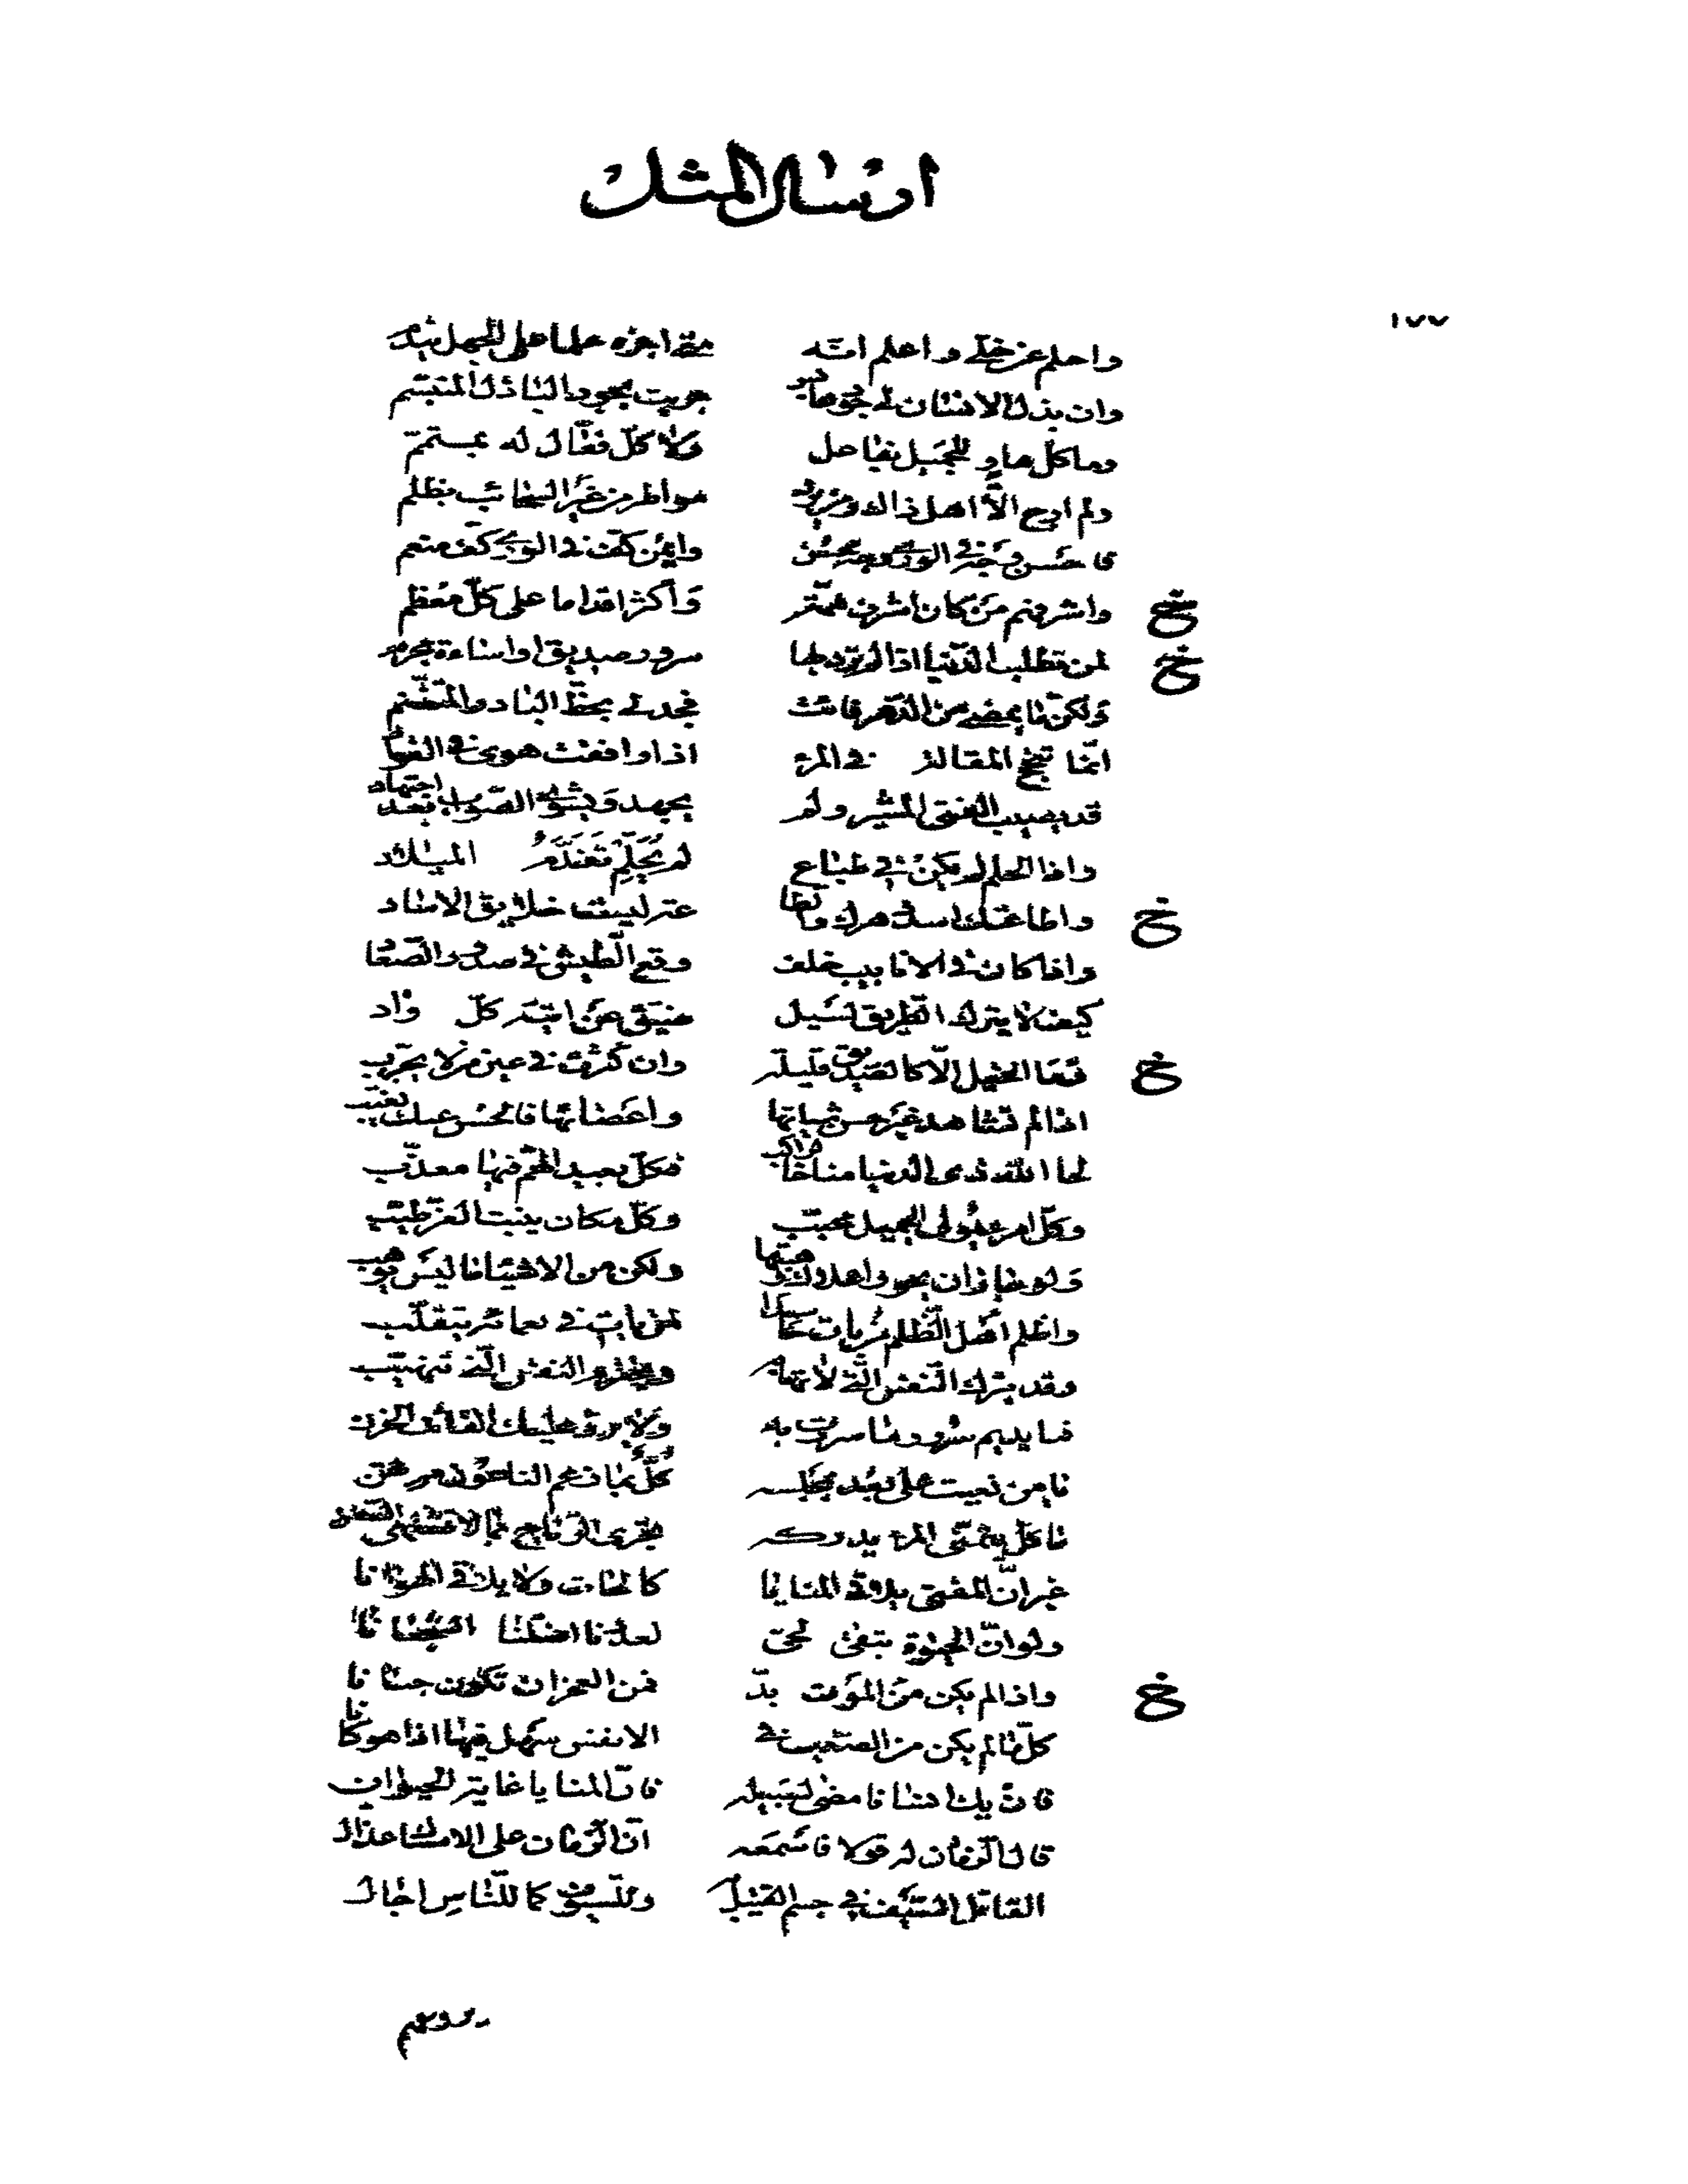 ارسال المثل
١٧٧
واحلم عن خلي واعلم انه متى اجزه حلما على الجهل يندم
وان بذل الانسان لي جود عابس جزيت بجود الباذل المتبسم
وما كل هاو للجميل بفاعل ولا كل فعال له بمتمم
ولم ارج الا اهل ذاك ومن يرد مواطر من غير السحائب يظلم
فاحسن وجه في الورى وجه محسن وايمن كف في الورى كف منعم
خ واشرفهم من كان اشرف همة وأكثر اقداما على كل معظم
خ لمن تطلب الدنيا اذا لم ترد بها سرور صديق او اساءة مجرم
ولكن ما يمضي من الدهر فائت فجد لي بحظ البادر المتغنم
انما تنجح المقالة في المرء اذا وافقت هوى في الفؤاد
قد يصيب الفتى المشير ولم يجهد ويشوى الصواب بعد اجتهاد
واذا الحلم لم يكن في طباع لم يحلم تقدم الميلاد
خ واطاعتك اسد دهرك والطاعة ليست خلايق الاساد
واذا كان في الانابيب خلف وقع الطيش في صدور الصعاد
كيف لا يترك الطريق لسيل ضيق عن اتيه كل واد
خ فما الخيل الا كالصديق قليلة وان كثرت في عين من لا يجرب
اذا لم تشاهد غير حسن شياتها واعضائها فالحسن عنك مغيب
لحا الله ذي الدنيا مناخا لراكب فكل بعيد الهم فيها معذب
وكل امرء يولي الجميل محبب وكل مكان ينبت العز طيب
ولو جاز ان يحووا علاك وهبتها ولكن من الاشياء ما ليس يوهب
واظلم اهل الظلم من بات حاسدا لمن بات في نعمائه يتقلب
وقد يترك النفس التي لا تهابه ويخترم النفس التي تتهيب
فما يديم سرور ما سررت به ولا يرد عليك الفائت الحزن
يا من نعيت على بعد بمجلسه كل بما زعم الناعون مرتهن
ما كل ما يتمنى المرء يدركه تجري الرياح بما لا تشتهي السفن
غير ان الفتى يلاقي المنايا كالحات ولا يلاقي الهوانا
ولو ان الحيوة تبقى لحي لعددنا اضلنا الشجعانا
خ واذا لم يكن من الموت بد فمن العجز ان تكون جبانا
كل ما لم يكن من الصعب في الانفس سهل فيها اذا هو كانا
فان يك انسانا مضى لسبيله فان المنايا غاية الحيوان
قال الزمان له قولا فاسمعه ان الزمان على الامساك عذال
القاتل السيف في جسم القتيل به وللسيوف كما للناس اجال